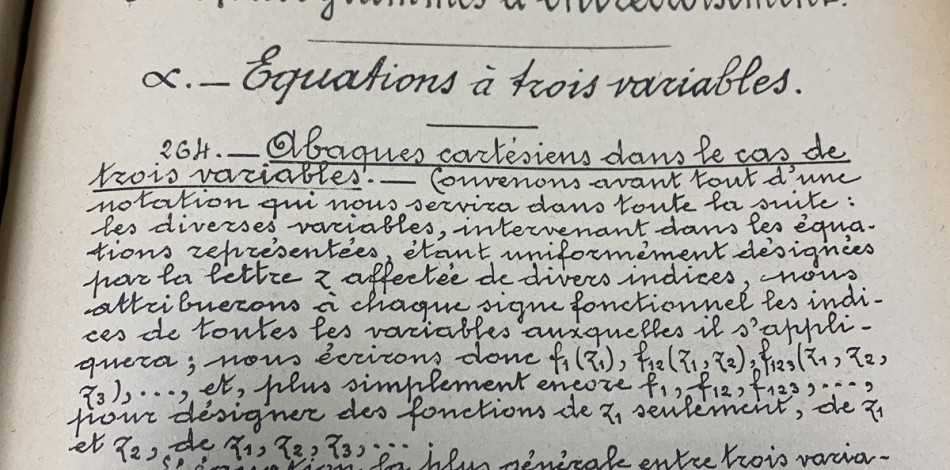 à entrecroisement.
α. — Equations à trois variables.
264. — Abaques cartésiens dans le cas de
trois variables. — Convenons avant tout d'une
notation qui nous servira dans toute la suite :
les diverses variables, intervenant dans les équa-
tions représentées, étant uniformément désignées
par la lettre z affectée de divers indices, nous
attribuerons à chaque signe fonctionnel les indi-
ces de toutes les variables auxquelles il s'appli-
quera ; nous écrirons donc f₁(z₁), f₁₂(z₁, z₂), f₁₂₃(z₁, z₂,
z₃), ..., et, plus simplement encore f₁, f₁₂, f₁₂₃, ...,
pour désigner des fonctions de z₁ seulement, de z₁
et z₂, de z₁, z₂, z₃, ...
la plus générale entre trois varia-